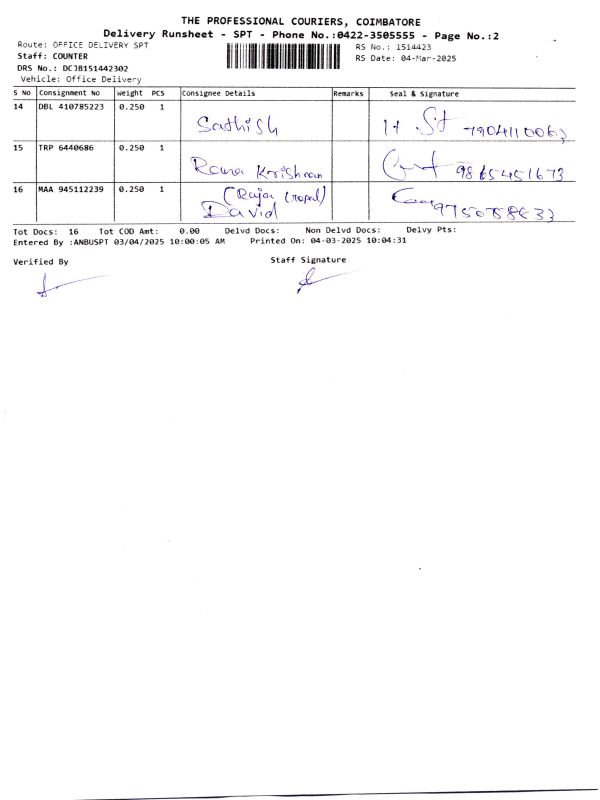 THE PROFESSIONAL COURIERS, COIMBATORE
Delivery Runsheet - SPT - Phone No.:0422-3505555 - Page No.:2
Route: OFFICE DELIVERY SPT RS No.: 1514423
Staff: COUNTER RS Date: 04-Mar-2025
DRS No.: DCJB151442302
Vehicle: Office Delivery
S No Consignment No Weight PCS Consignee Details Remarks Seal & Signature
14 DBL 410785223 0.250 1
Sathish 7904110063
15 TRP 6440686 0.250 1
Rama Krishnan 9865451673
16 MAA 945112239 0.250 1 (Raja Gopal)
David 9750758633
Tot Docs: 16 Tot COD Amt: 0.00 Delvd Docs: Non Delvd Docs: Delvy Pts:
Entered By :ANBUSPT 03/04/2025 10:00:05 AM Printed On: 04-03-2025 10:04:31
Verified By Staff Signature